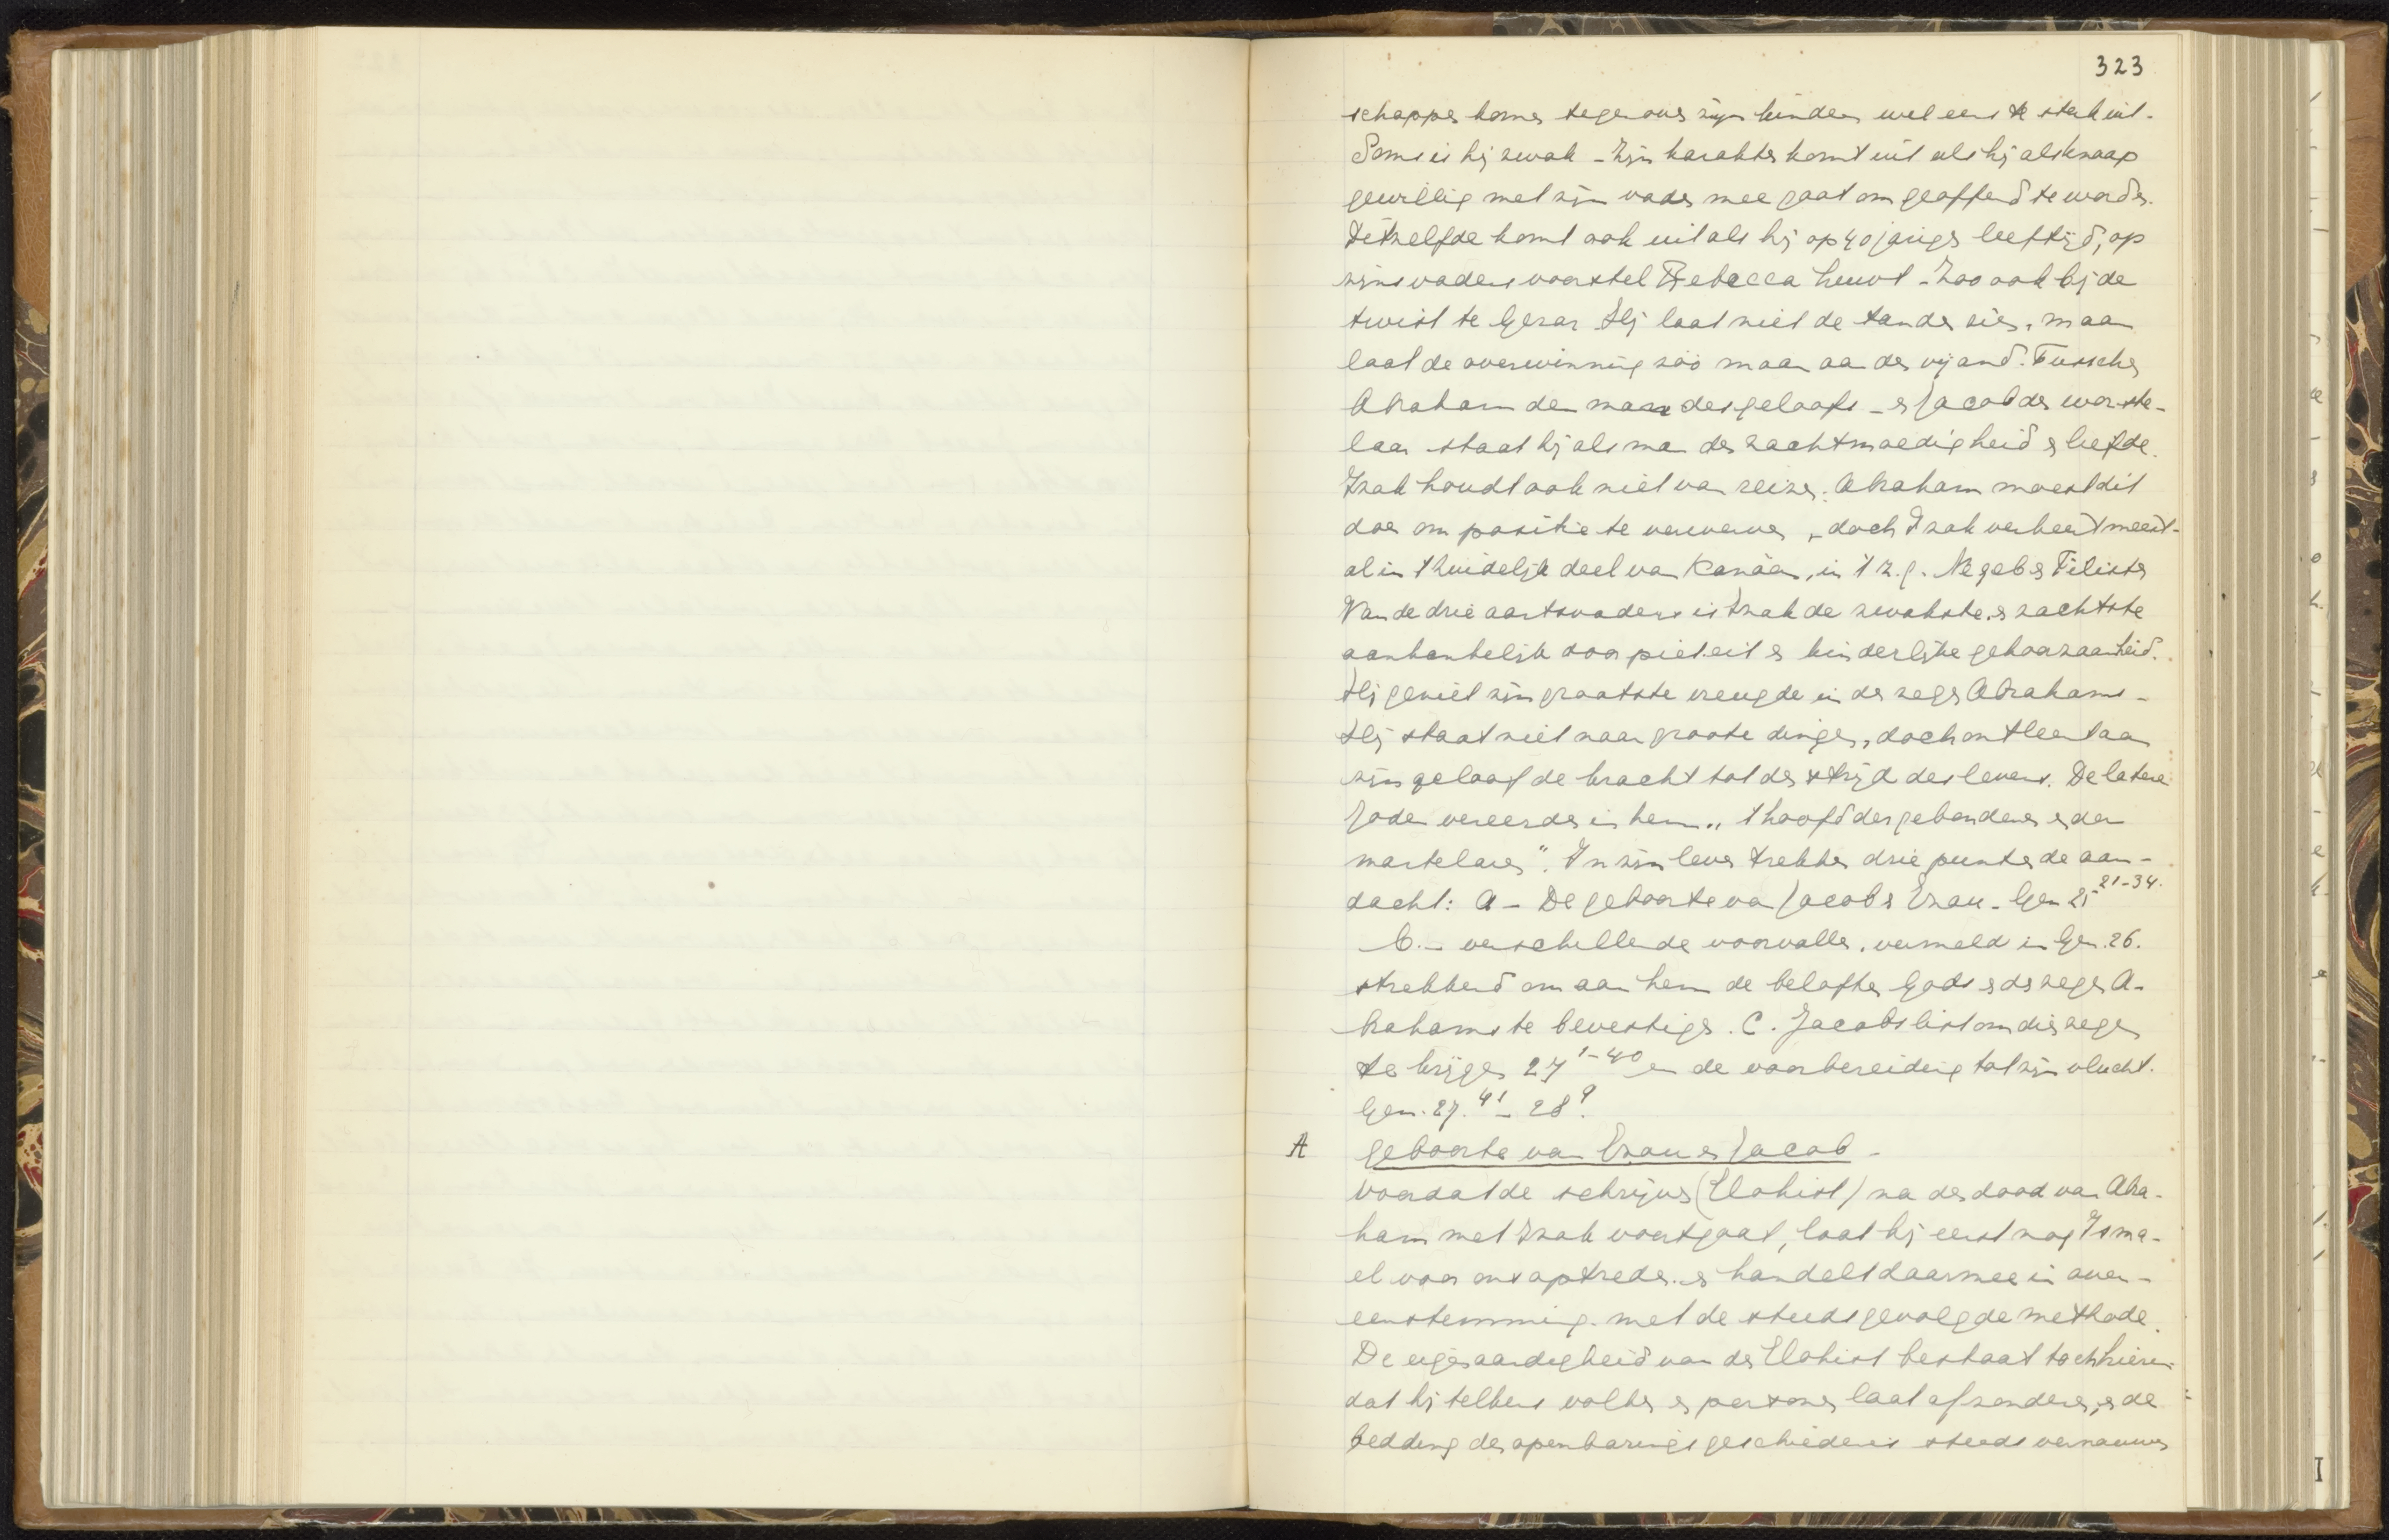 323
schappen komen tegenover zijn kinderen wel eens te sterk uit.
Soms is hij zwak - Zijn karakter komt uit als hij als knaap
gewillig met zijn vader mee gaat om geofferd te worden.
Ditzelfde komt ook uit als hij op 40 jarigen leeftijd, op
zijns vaders voorstel Rebecca huwt - Zoo ook bij de
twist te Gerar Hij laat niet de tanden zien, maar
laat de overwinning zoo maar aan den vijand. Tusschen
Abraham den man des geloofs - en Jacob den worste-
laar staat hij als man der zachtmoedigheid en liefde.
Izak houdt ook niet van reizen. Abraham moest dit
doen om positie te verwerven, doch Izak verkeert meest-
al in 't zuidelijk deel van Kanäan, in 't z.g. Negeb en Filistea
Van de drie aartsvaders is Izak de zwakste en zachtste
aanhankelijk door piëteit en kinderlijke gehoorzaamheid.
Hij geniet zijn grootste vreugde in den zegen Abrahams -
Hij staat niet naar groote dingen, doch ontleent aan
zijn geloof de kracht tot den strijd des levens. De latere
Joden vereerden in hem „'t hoofd der gebondenen en der
martelaren". In zijn leven trekken drie punten de aan-
dacht: A - De geboorte van Jacob en Ezau - Gen 25 21-34.
b. - verschillende voorvallen, vermeld in Gen. 26.
strekkend om aan hem de beloften Gods en den zegen A-
brahams te bevestigen. C. Jacobs list om dien zegen
te krijgen 27 1-40 en de voorbereiding tot zijn vlucht.
Gen. 27. 41 - 28 9.
A geboorte van Ezau en Jacob -
Voordat de schrijver (Elohist) na den dood van Abra-
ham met Izak voortgaat, laat hij eerst nog Isma-
el voor ons optreden en handelt daarmee in over-
eenstemming met de steeds gevolgde methode.
De eigenaardigheid van den Elohist bestaat toch hierin
dat hij telkens volken en personen laat afzonderen, en de
bedding der openbaringsgeschiedenis steeds vernauwen